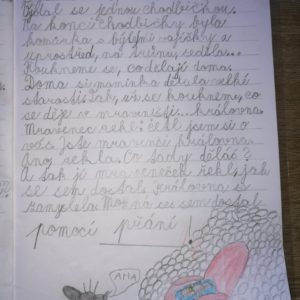 Bylal se jednou chodbičkou.
Na konci chodbičky byla
komůrka s bílými vajíčky a
uprostřed, na trůnu, seděla...
Koukneme se, co dělají doma.
Doma si maminka dělala velké
starosti. Tak, už se kouknem, co
se děje v mraveništi... královna.
Mravenec řekl: četl jsem si o
vás. Jste mravenčí královna.
Ano, řekla. Co tady děláš?
A tak jí mraveneček řekl, jak
se sem dostal. Královna se
zamyslela. Možná ses sem dostal
pomocí přání!
AHA